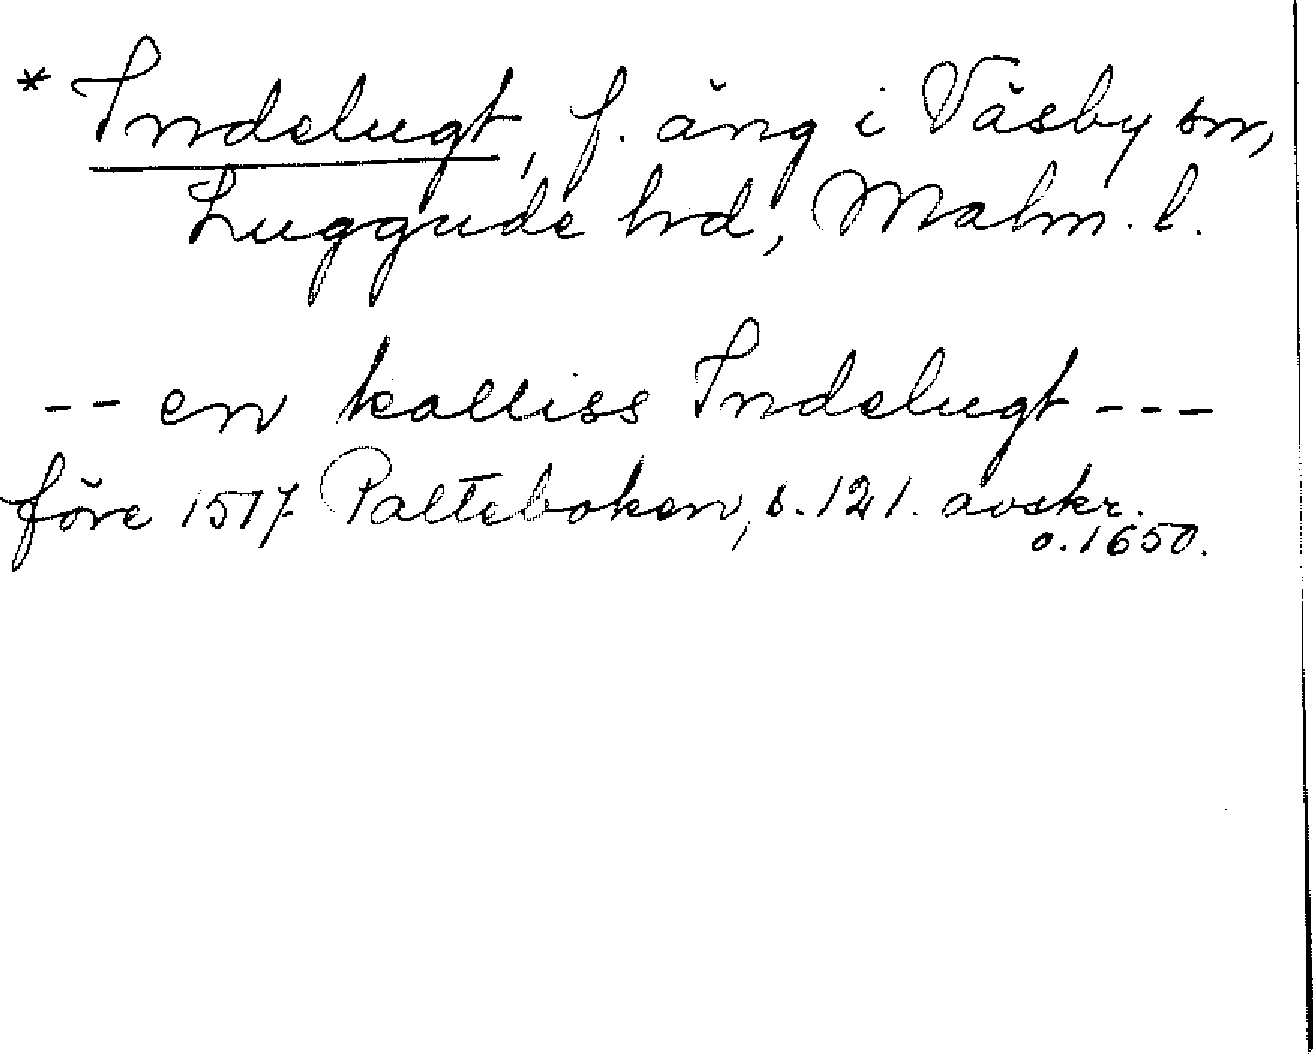 * Indelugt, f. äng i Väsby sn,
Luggude hd, Malm. l.
-- en kalliss Indelugt ---
före 1517. Palteboken, s. 121. avskr.
o. 1650.